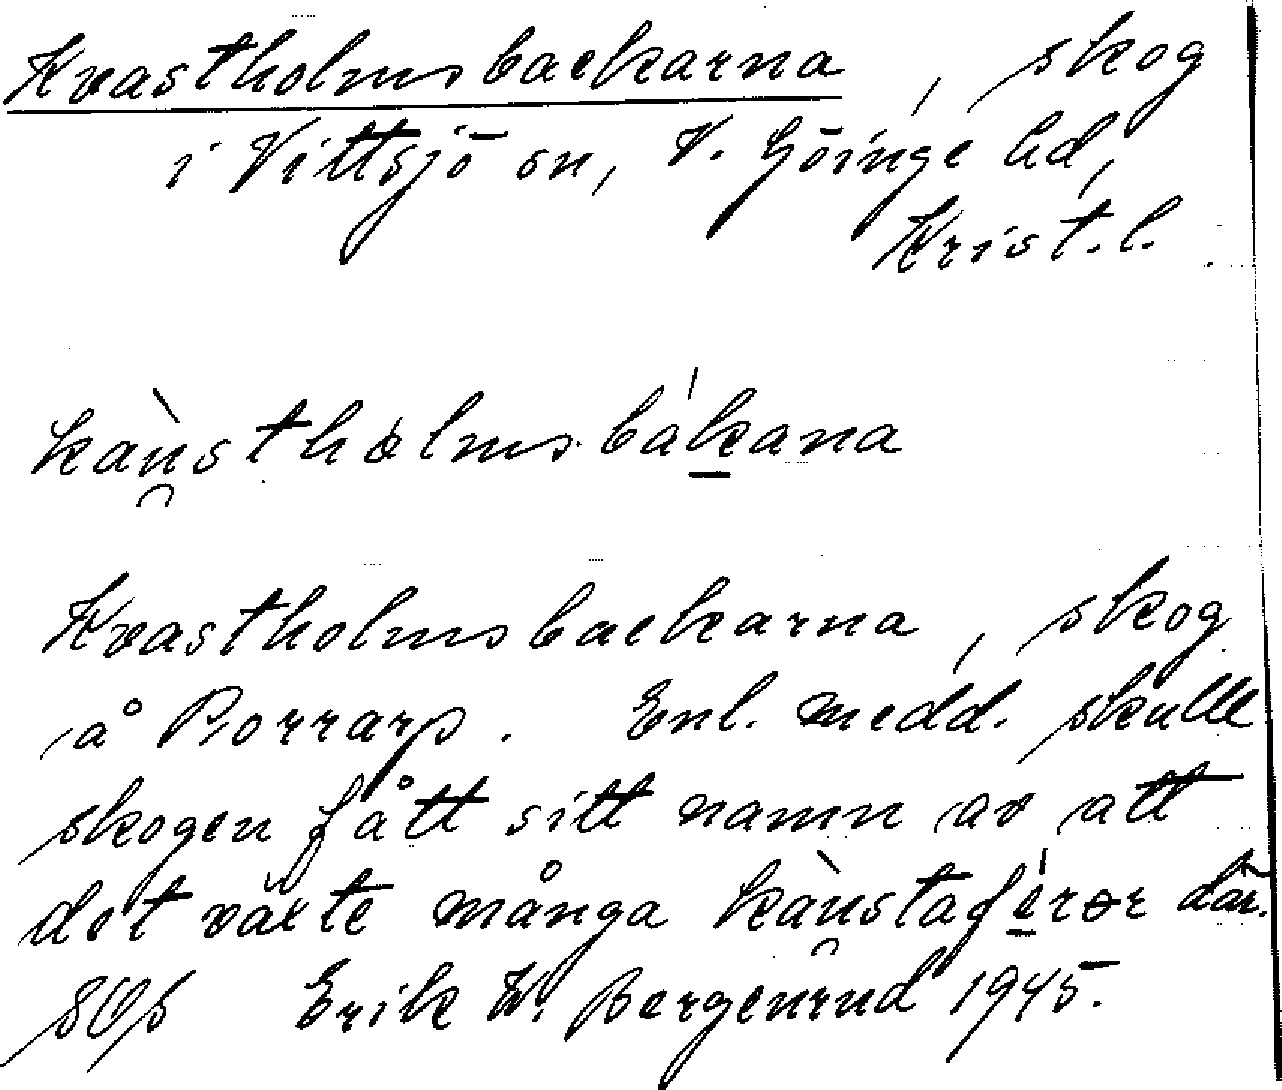 Kvastholmsbackarna, skog
i Vittsjö sn, V. Göinge hd,
Krist. l.
kàu̯stholmsbák̲ana
Kvastholmsbackarna, skog
å Borrarp. Enl. medd. skulle
skogen fått sitt namn av att
det växte många kàu̯staf́e̲ror där.
Erik W. Bergenrud 1945.